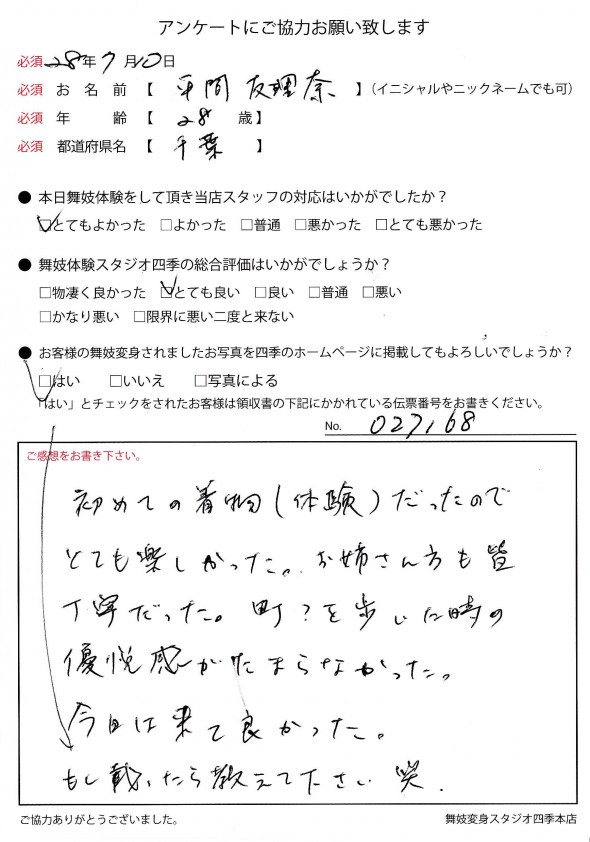 アンケートにご協力お願い致します
必須 28年7月10日
必須 お名前【 平間 友理奈 】(イニシャルやニックネームでも可)
必須 年齢【 28 歳】
必須 都道府県名【 千葉 】
● 本日舞妓体験をして頂き当店スタッフの対応はいかがでしたか?
☑とてもよかった □よかった □普通 □悪かった □とても悪かった
● 舞妓体験スタジオ四季の総合評価はいかがでしょうか?
□物凄く良かった ☑とても良い □良い □普通 □悪い
□かなり悪い □限界に悪い二度と来ない
● お客様の舞妓変身されましたお写真を四季のホームページに掲載してもよろしいでしょうか?
☑はい □いいえ □写真による
「はい」とチェックをされたお客様は領収書の下記にかかれている伝票番号をお書きください。
No. 027168
ご感想をお書き下さい。
初めての着物(体験)だったので
とても楽しかった。お姉さん方も皆
丁寧だった。町?を歩いた時の
優悦感がたまらなかった。
今日は来て良かった。
もし載ったら教えて下さい 笑.
ご協力ありがとうございました。
舞妓変身スタジオ四季本店